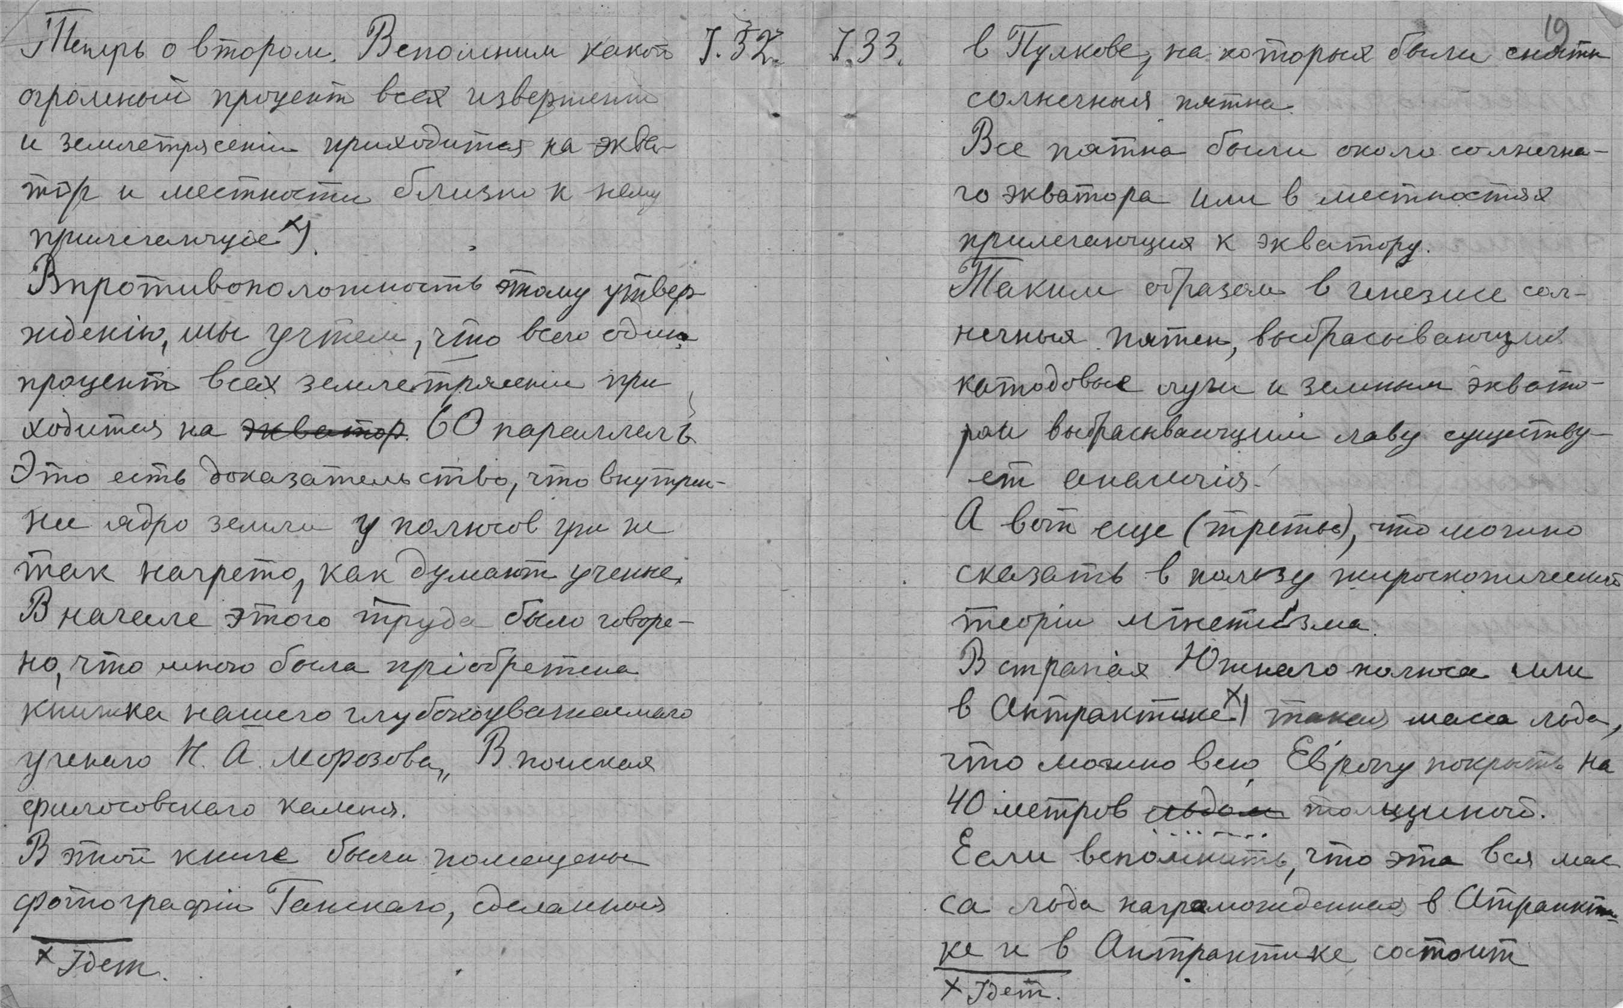 Теперь о втором. Вспомним какой
огромный процент всех извержений
и землетрясении приходится на эква-
тор и местности близко к нему
прилегающие х).
Впротивоположность этому утвер-
ждению, мы учтем, что всего один
процент всех землетрясении при
ходится на экватор 60 параллель
Это есть доказательство, что внутрен-
нее ядро земли у полюсов не
так нагрето, как думают ученые.
В начале этого труда было говоре-
но, что мною была пріобретена
книжка нашего глубокоуважаемаго
ученаго Н. А. Морозова „В поисках
философскаго камня.
В этой книге были помещены
фотографіи Ганскаго, сделанныя
х Ibem.
I. 32.
I. 33.
19
в Пулкове, на которых были сняты
солнечныя пятна.
Все пятна были около солнечна-
го экватора или в местностях
прилегающих к экватору.
Таким образом в генезисе сол-
нечных пятен, выбрасывающих
катодовые лучи и земным эквато-
ром выбрасывающим лаву существу-
ет аналогія.
А вот еще (третье), что можно
сказать в пользу жироскопической
теоріи мгнетизма.
В странах Южнаго полюса или
в Антрактике х) такая масса льда,
что можно всю Европу покрыть на
40 метров льдом толщиной.
Если вспомнить, что эта вся мас
са льда нагроможденная в Атракти-
ке и в Антрактике состоит
х Ibem.